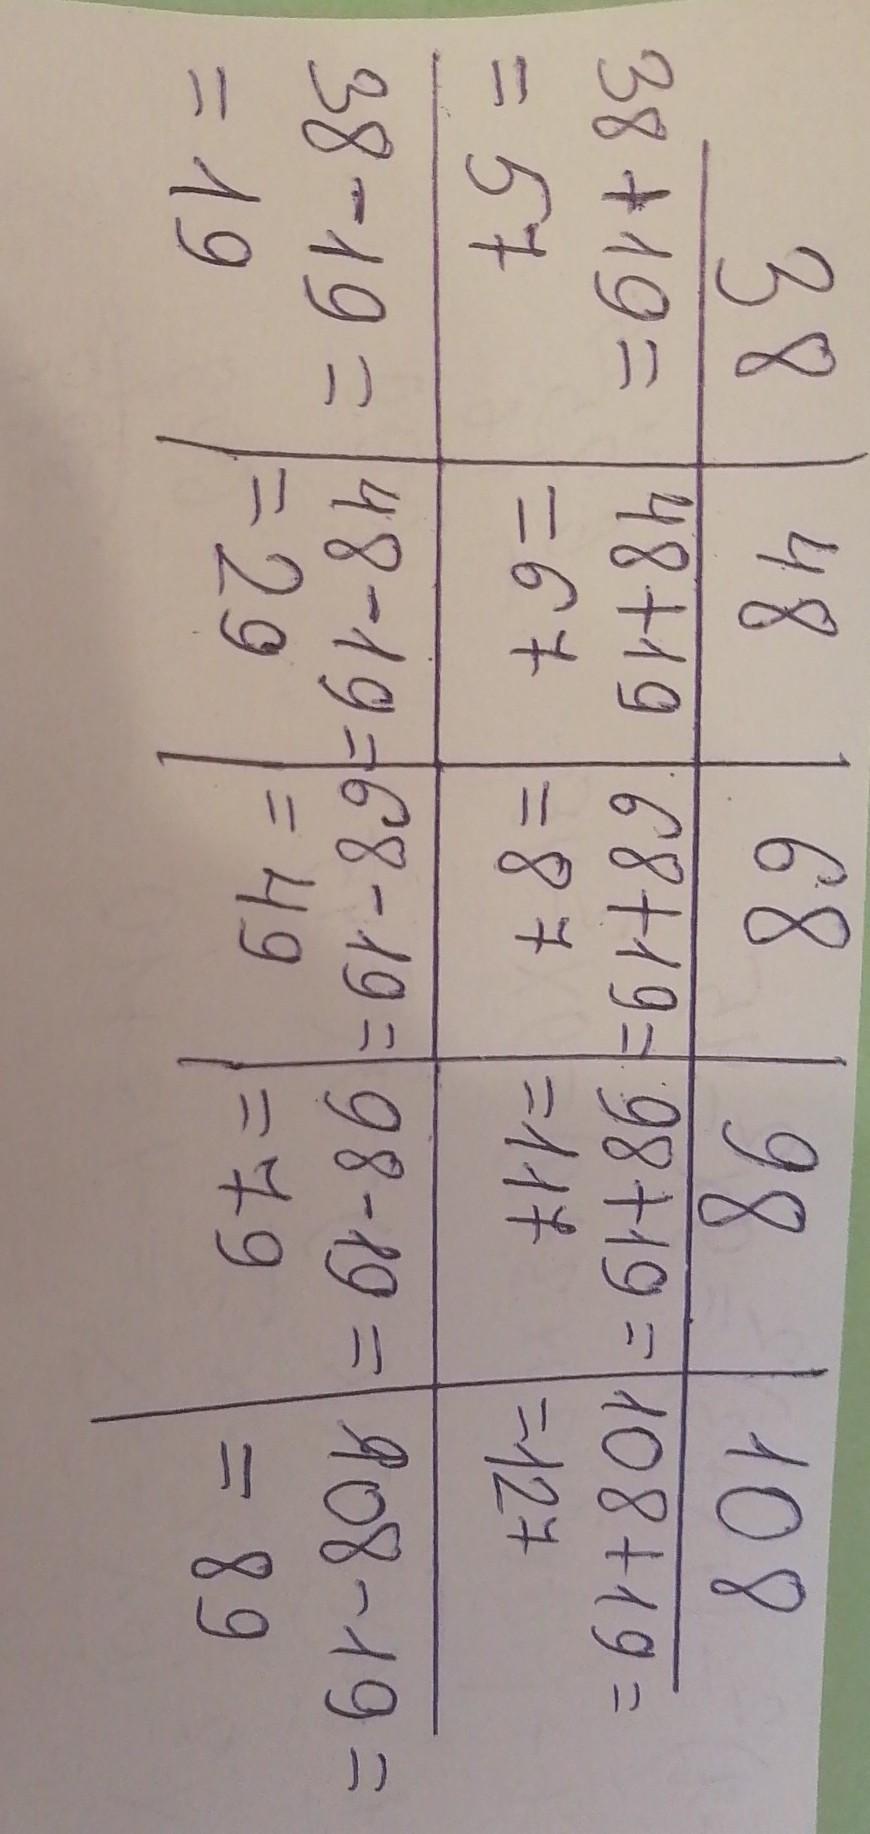 38 48 68 98 108
38+19= 48+19 68+19= 98+19= 108+19=
=57 =67 =87 =117 =127
38-19= 48-19= 68-19= 98-19= 108-19=
=19 =29 =49 =79 =89